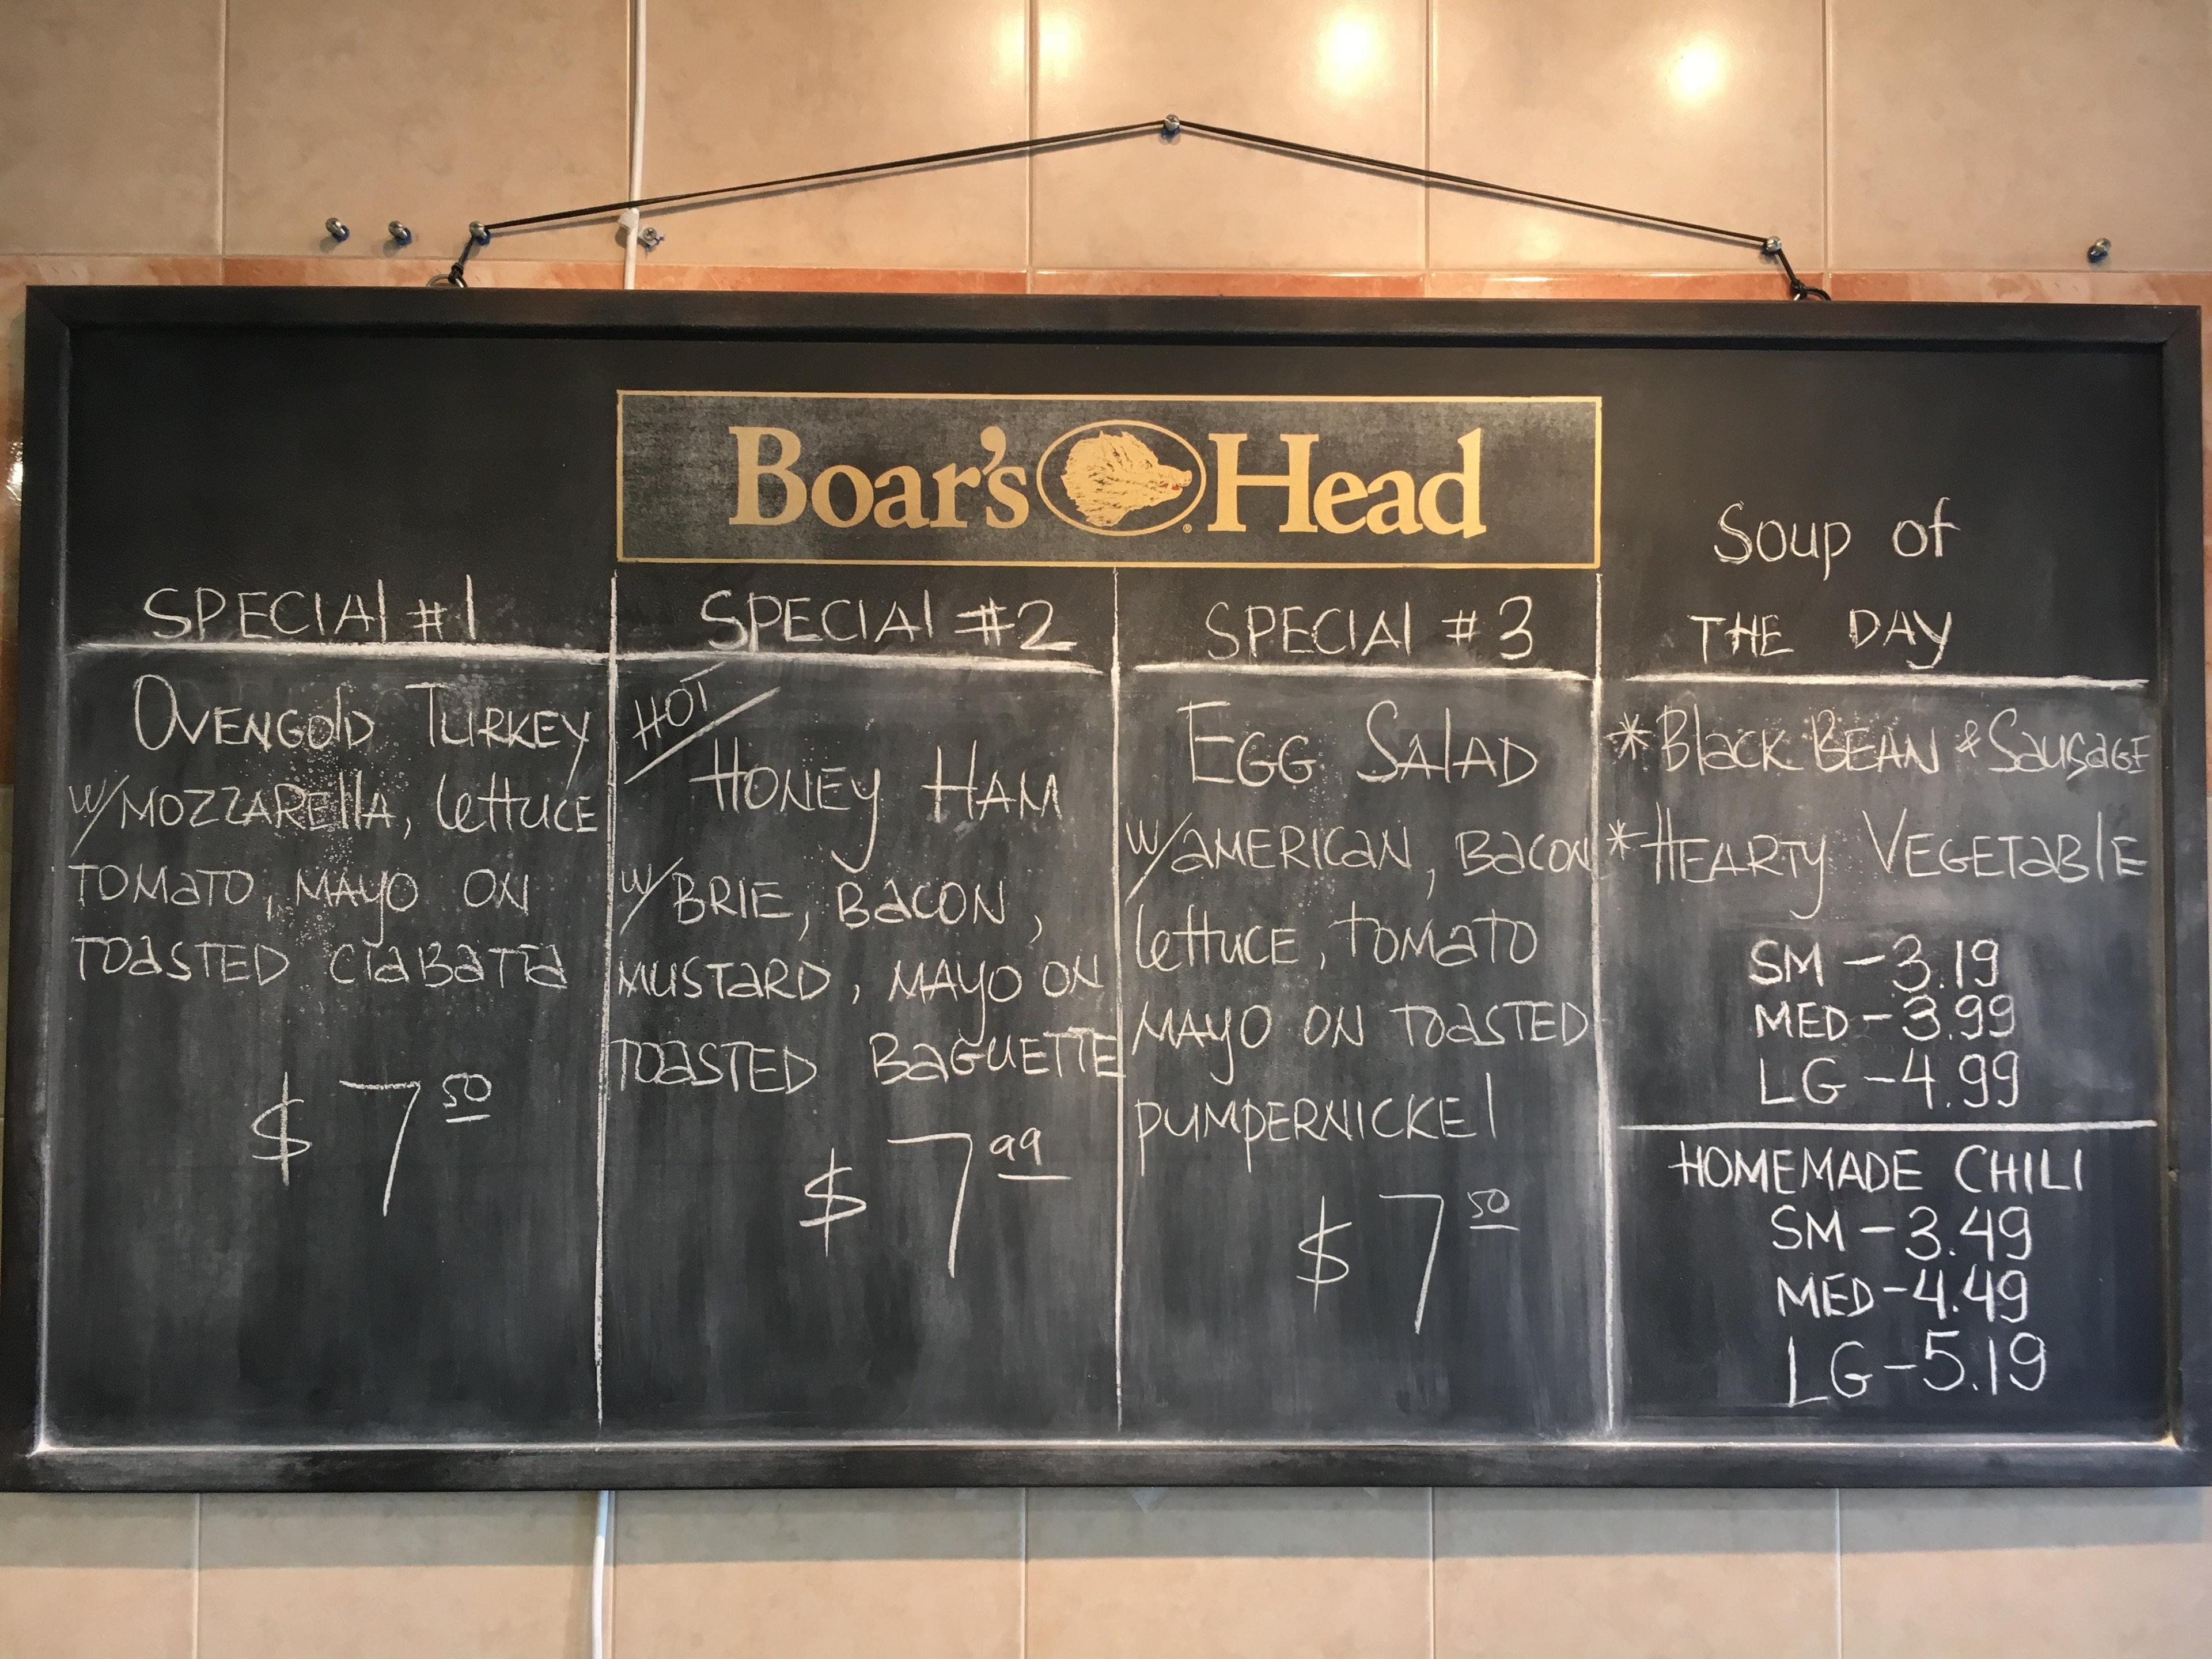 Boar's Head
SPECIAL #1
OVENGOLD TURKEY
W/MOZZARELLA, LETTUCE
TOMATO, MAYO ON
TOASTED CIABATTA
$ 7 50
SPECIAL #2
HOT
HONEY HAM
W/BRIE, BACON,
MUSTARD, MAYO ON
TOASTED BAGUETTE
$ 7 99
SPECIAL #3
EGG SALAD
W/AMERICAN, BACON
LETTUCE, TOMATO
MAYO ON TOASTED
PUMPERNICKEL
$ 7 50
Soup of
THE DAY
*BLACK BEAN & SAUSAGE
*HEARTY VEGETABLE
SM - 3.19
MED - 3.99
LG - 4.99
HOMEMADE CHILI
SM - 3.49
MED - 4.49
LG - 5.19